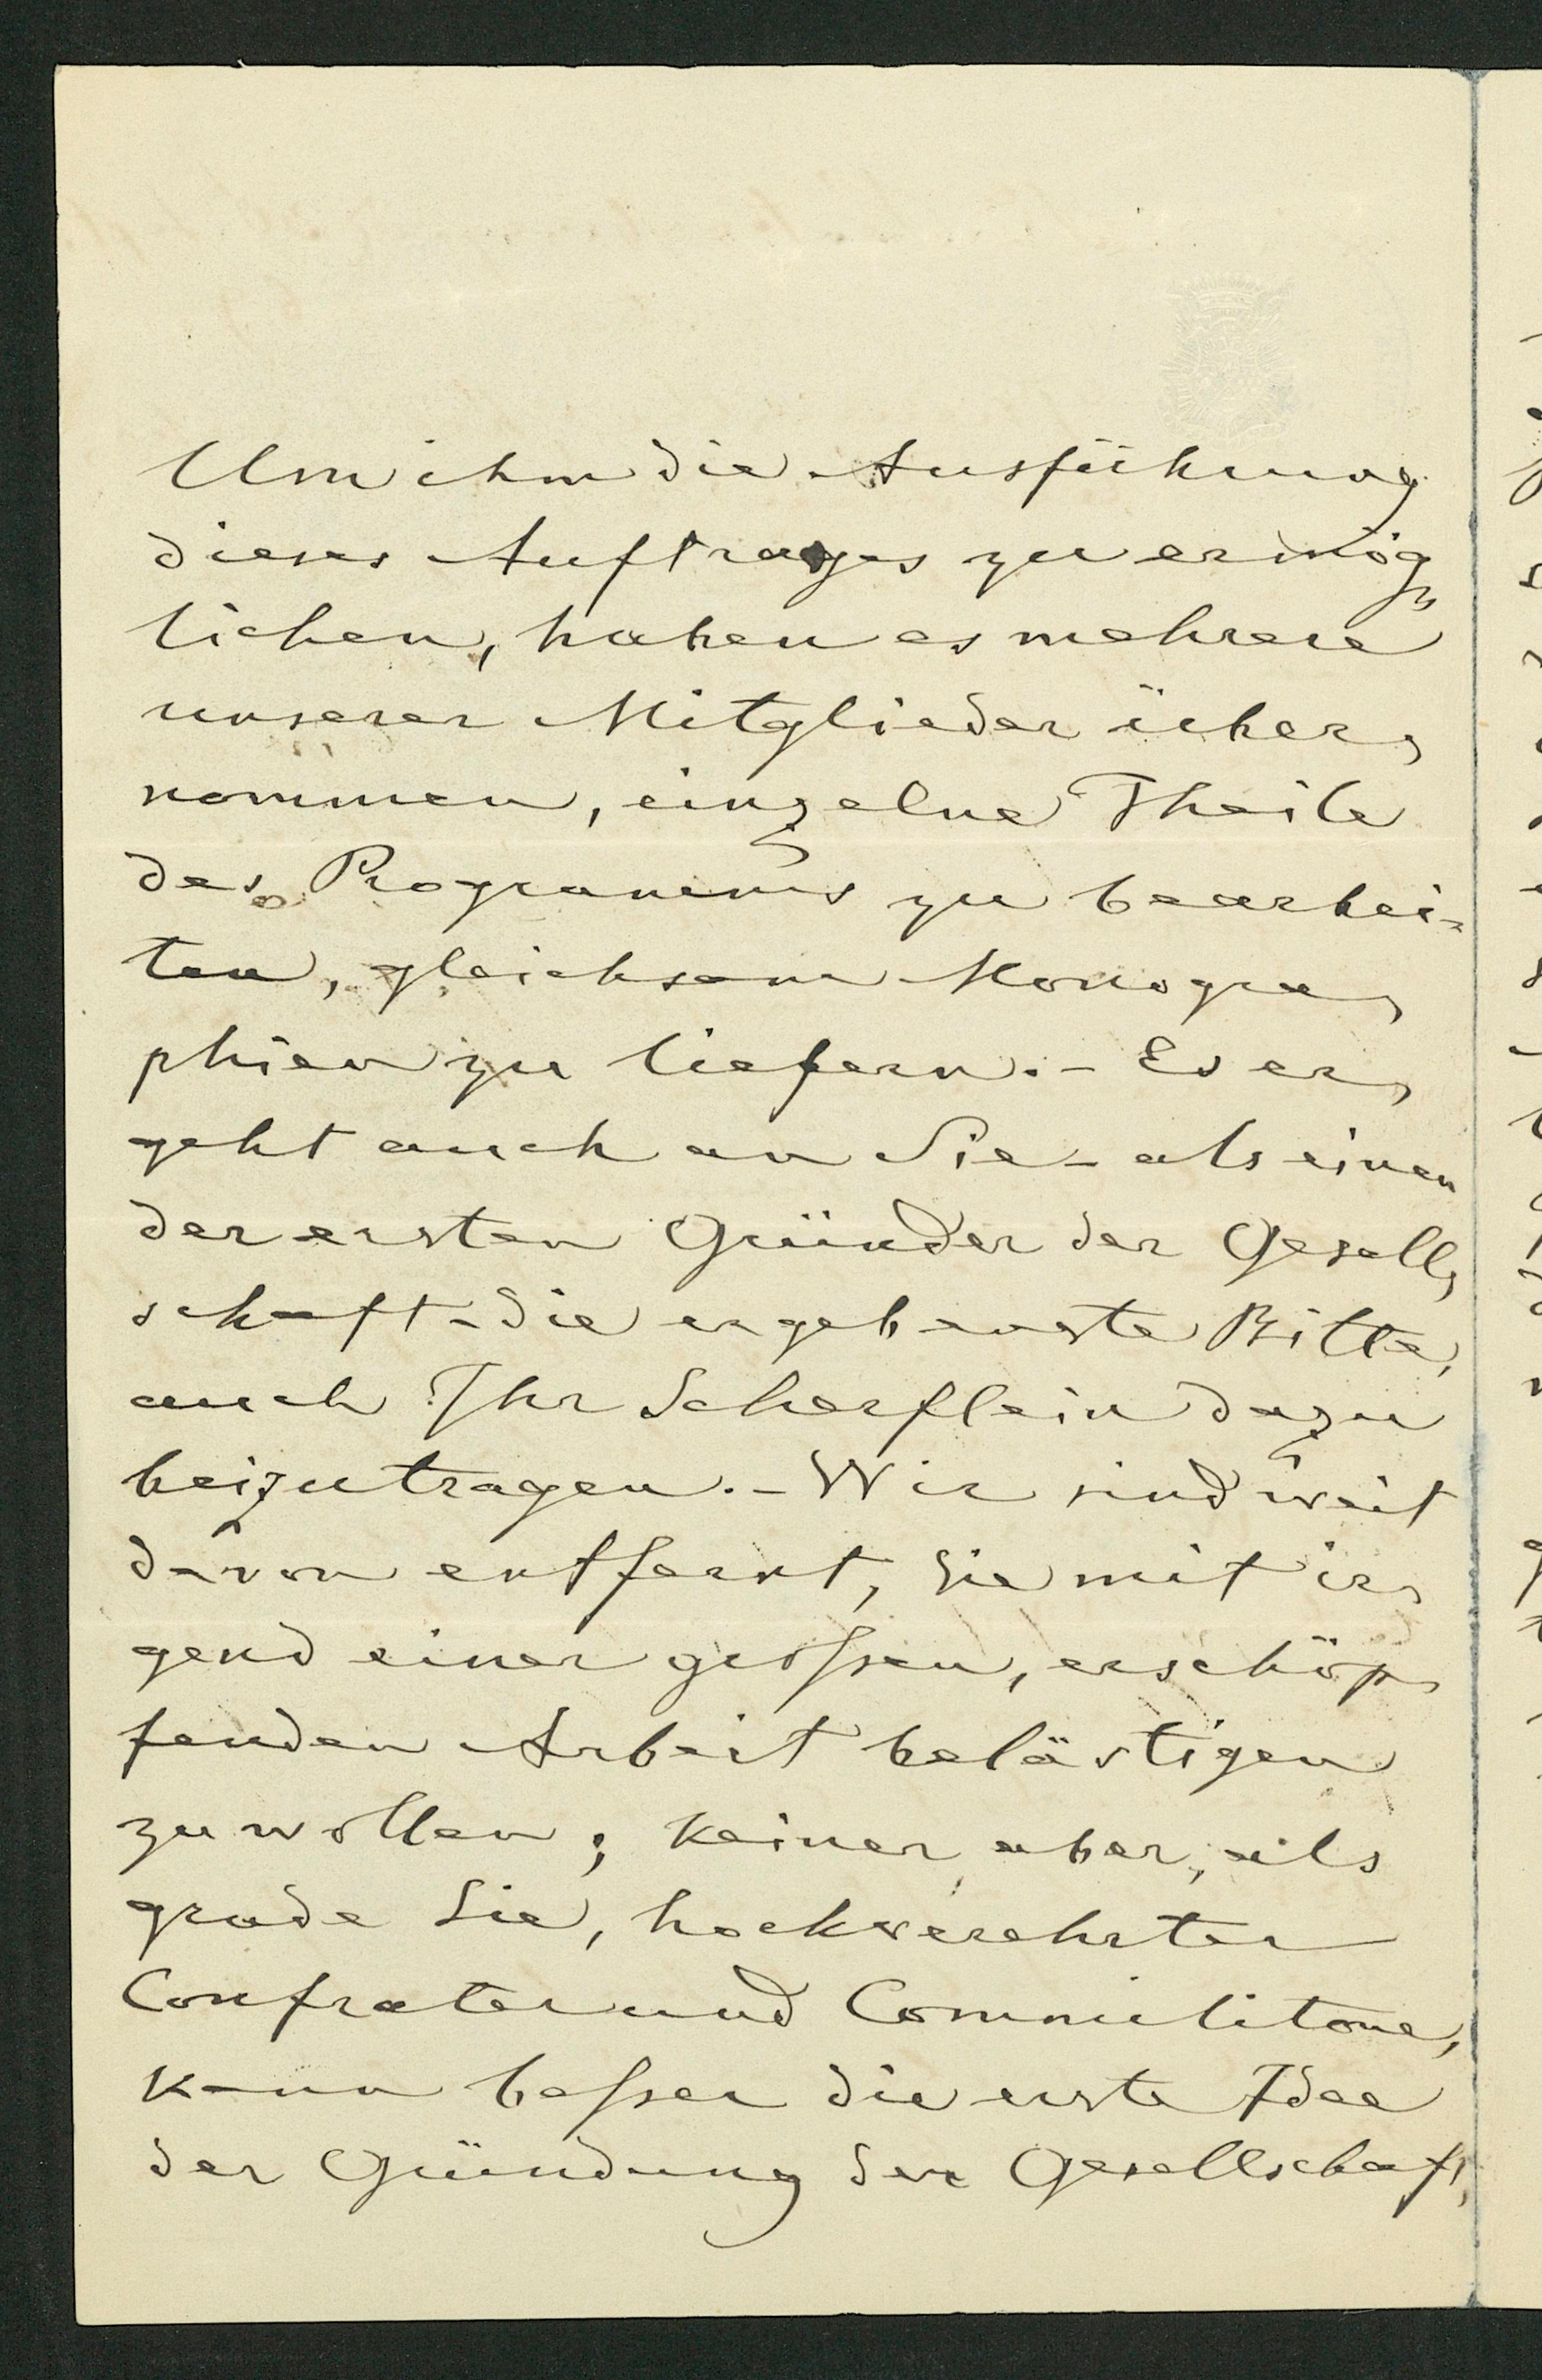 Um ihm die Ausführung
dieses Auftrages zu ermög-
lichen, haben es mehrere
unserer Mitglieder über-
nommen, einzelne Theile
des Programms zu bearbei-
ten, gleichsam Monogra-
phien zu liefern. - Es er-
geht auch an Sie - als einen
der ersten Gründer der Gesell-
schaft - die ergebenste Bitte,
auch Ihr Scherflein dazu
beizutragen. - Wir sind weit
davon entfernt, Sie mit ir-
gend einer großen, erschöp-
fenden Arbeit belästigen
zu wollen; keiner aber, als
grade Sie, hochverehrter
Confrater und Commilitone,
kann beßer die erste Idee
der Gründung der Gesellschaft,